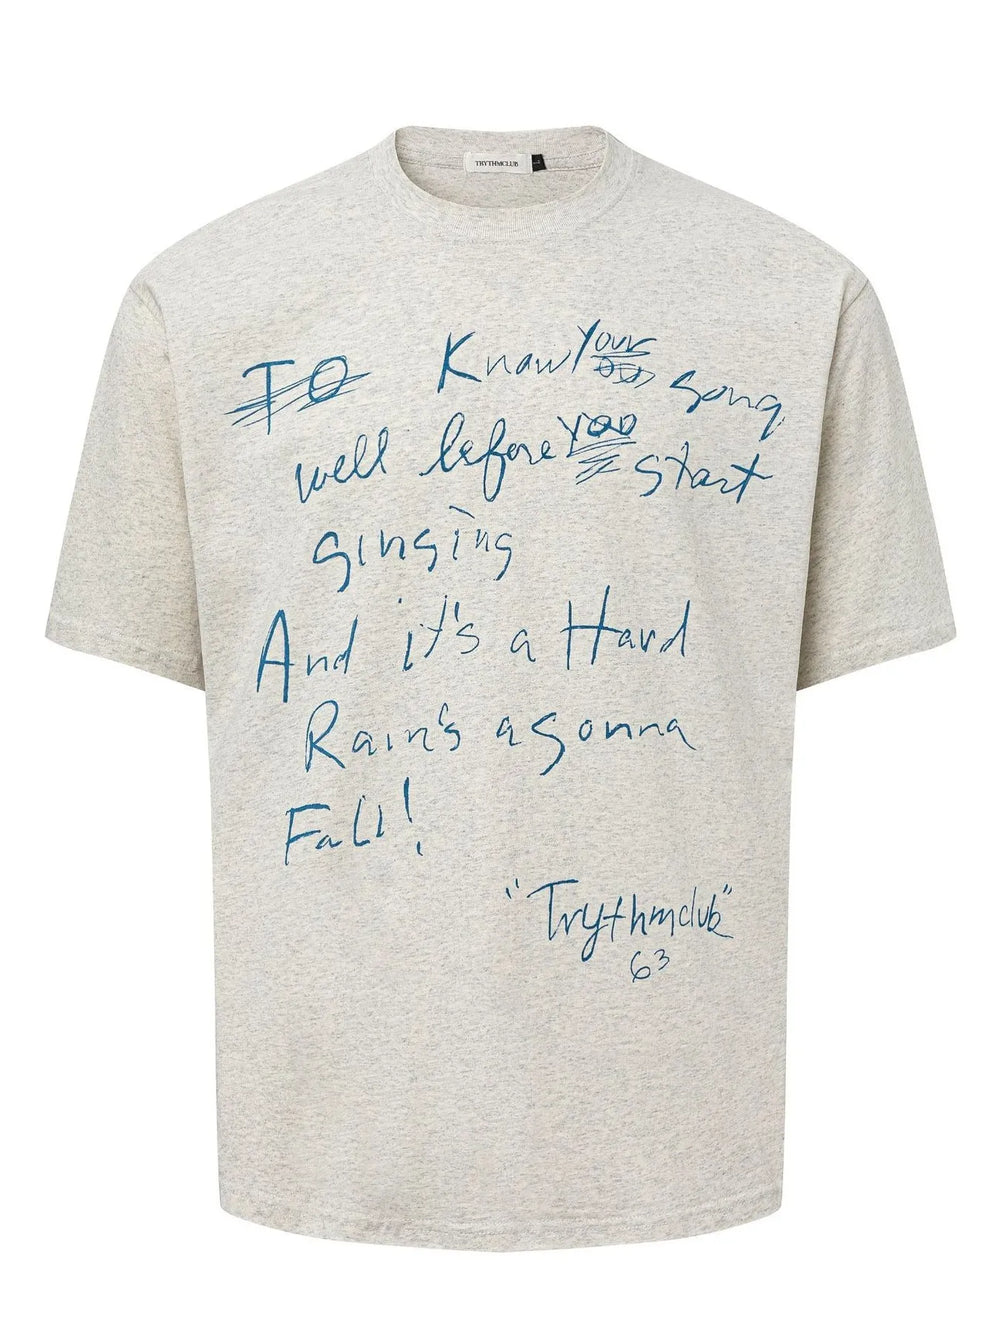 TRYTHMCLUB
TO Know Your song
well before you start
singing
And it's a Hard
Rain's agonna
Fall!
"Trythmclub"
63